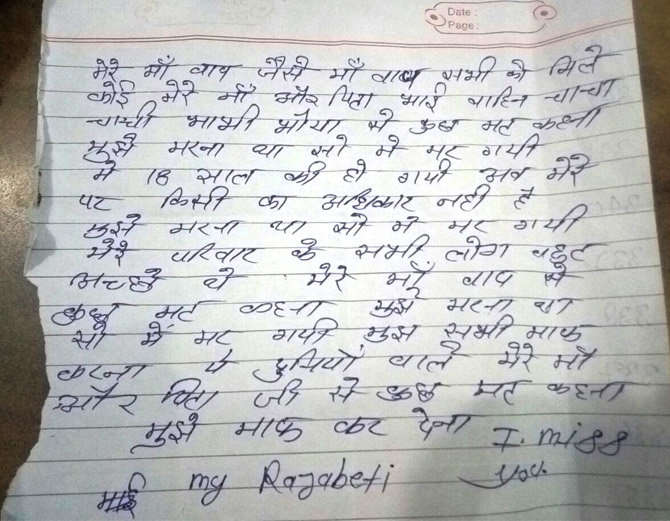 Date :
Page :
मेरे माँ वाप जैसे माँ वाप सभी को मिले
कोई मेरे माँ और पिता भाई वाहिन चाचा
चाच्ची भाभी भौया से कुछ मत कहना
मुझे मरना था सो मे मर गयी
मे 18 साल की हो गयी अव मेरे
पर किसी का अधिकार नही है
मुझे मरना था सो मे मर गयी
मेरे परिवार के सभी लोग वहुत
अच्छे थे मेरे माँ वाप से
कुछ मत कहना मुझे मरना था
सो मैं मर गयी मुझे सभी माफ
करना ये दुनियाँ वाले मेरे माँ
और पिता जी से कुछ मत कहना
मुझे माफ कर देना I. miss
you.
my Rajabeti